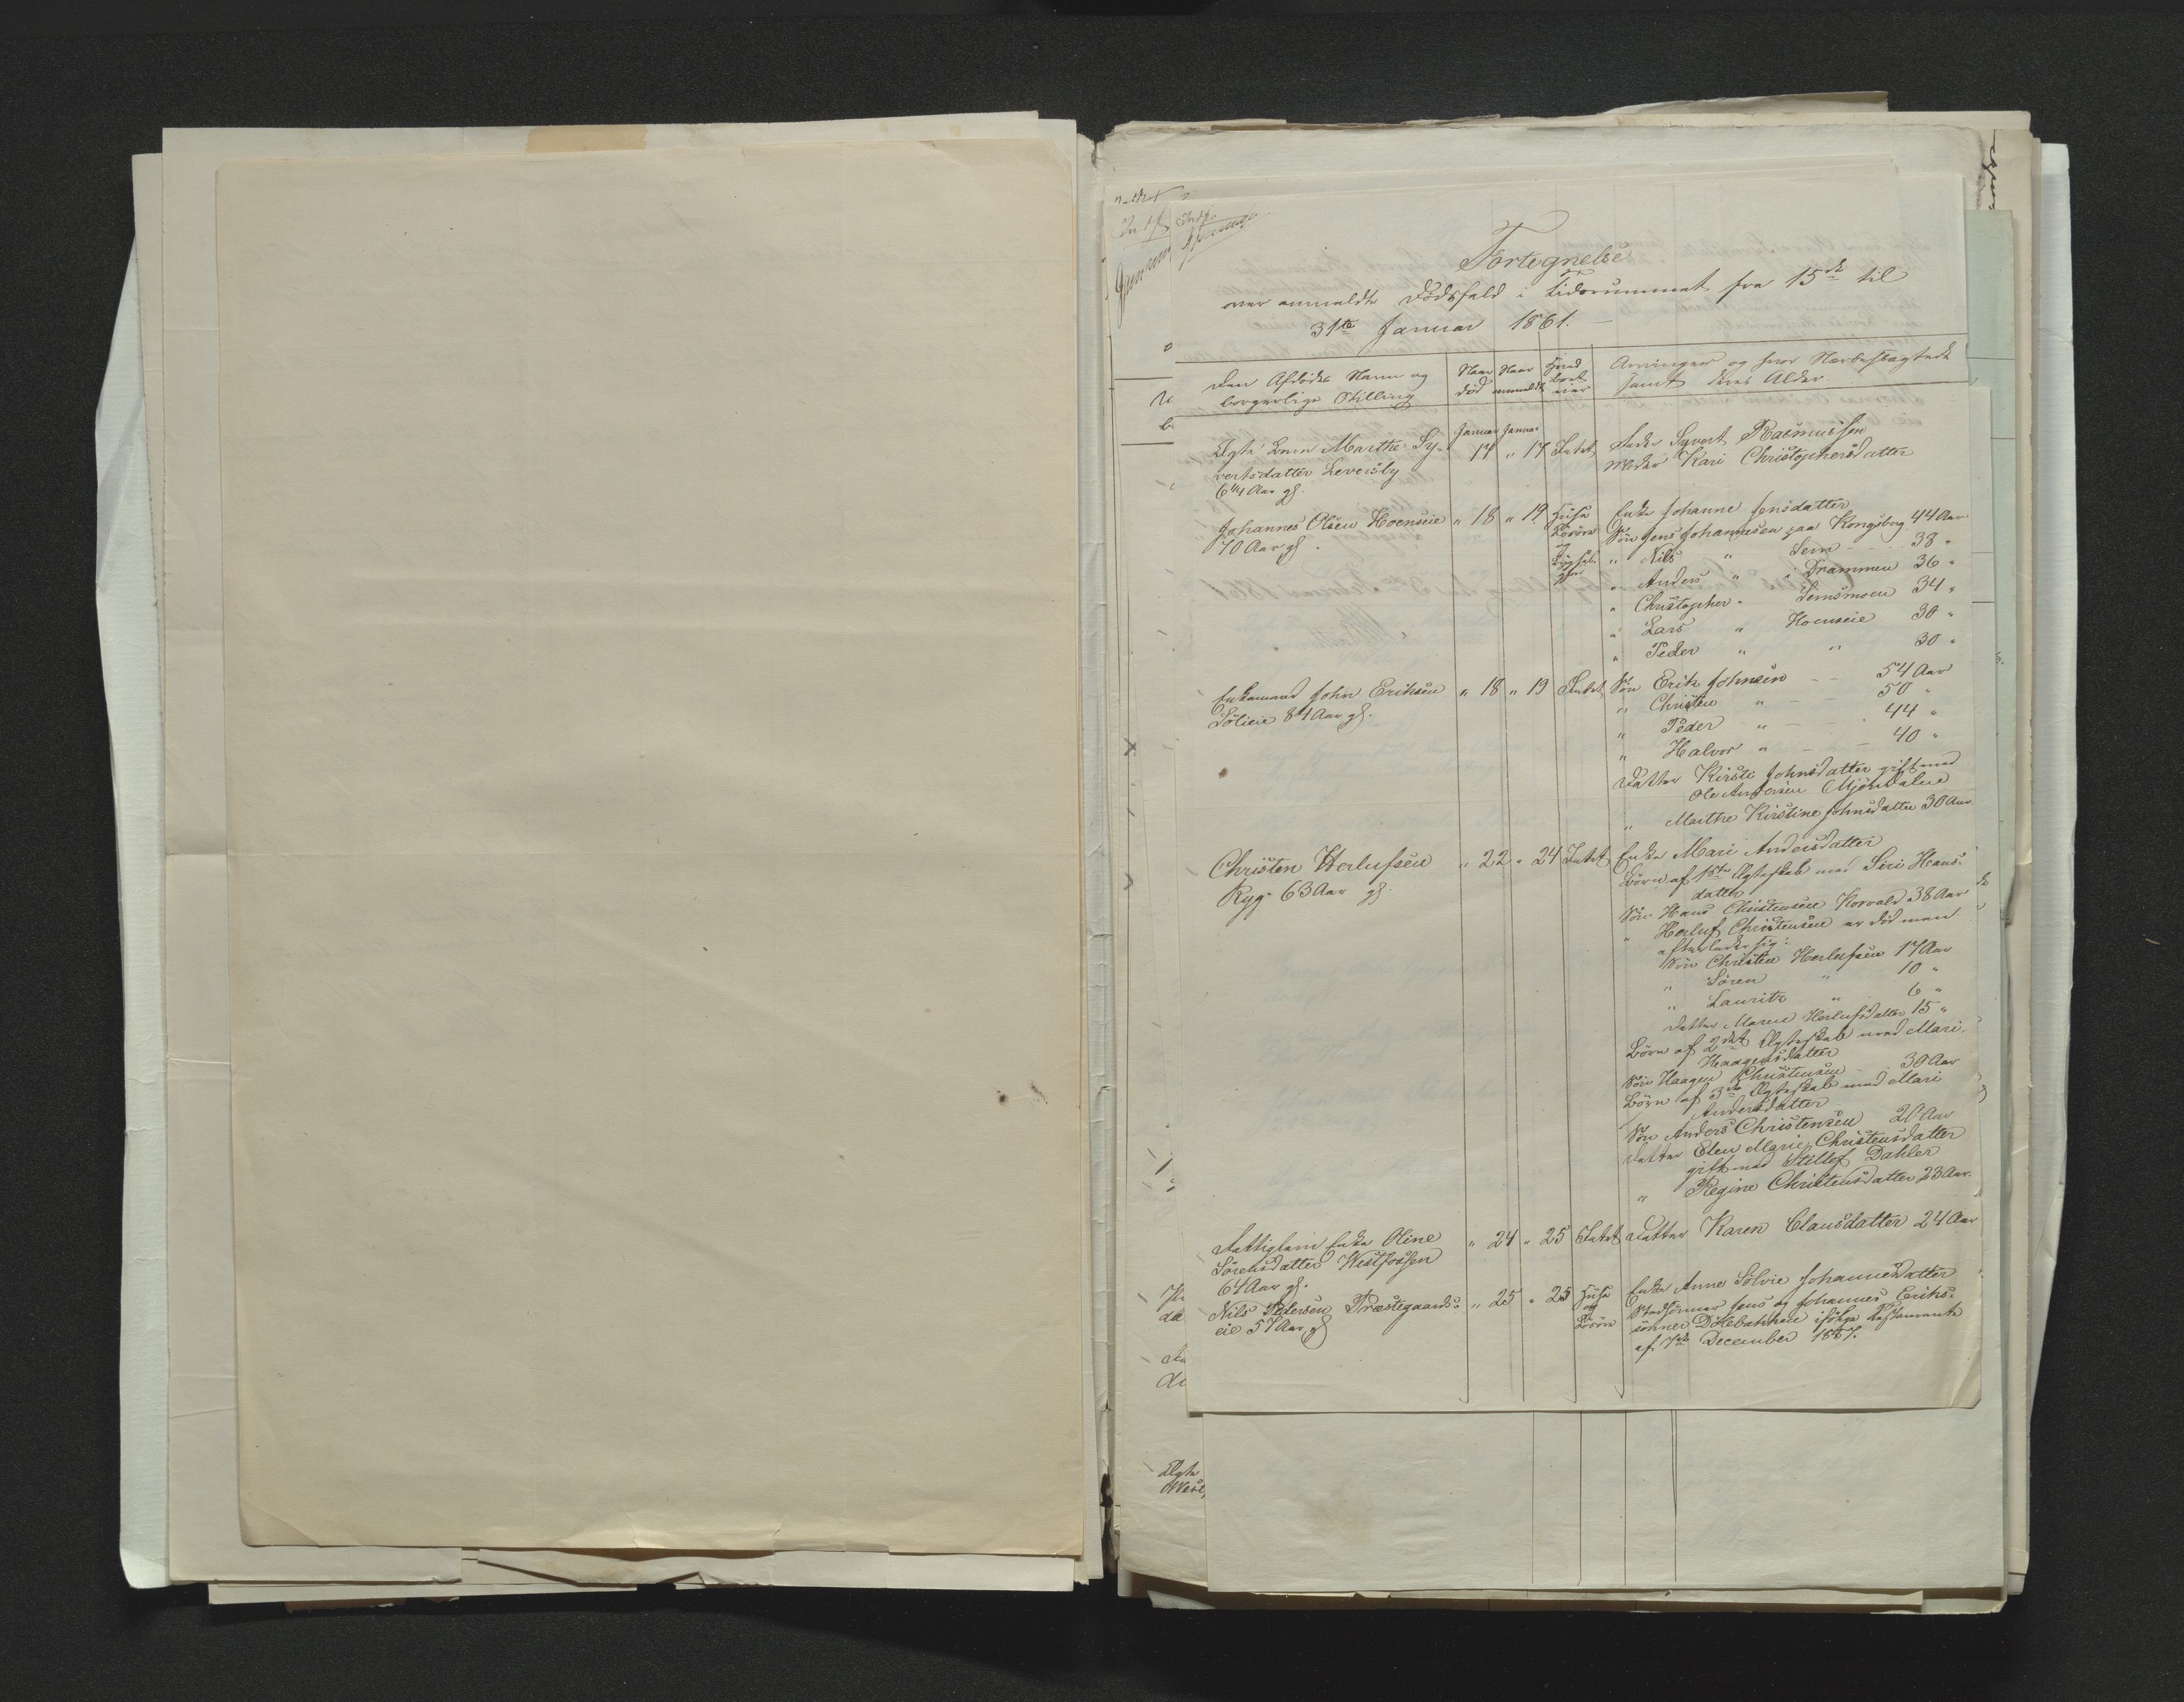 Fortegnelse
over anmeldte Dødsfald i Tidsrummet fra 15de til
31te Januar 1861.
Den Afdødes Navn og
borgerlige Stilling
Naar
død
Naar
anmeldt
Hvad
Boet
eier
Arvinger og hvor Nærbeslægtede
samt deres Alder
Januar Januar
Ægte Barn Marthe Sy-
vertsdatter Leversby
6 1/4 Aar gl.
14 " 17 Intet
Fader Syvert Rasmussen
Moder Kari Christophersdatter
Johannes Olsen Hoenseie
70 Aar gl.
" 18 " 19 Huse
Løsøre
og
Enke Johanne Jensdatter
Søn Jens Johannesen paa Kongsberg 44 Aar
" Nils " Sem 38 "
" Anders " i Drammen 36 "
" Christopher " Semsmoen 34 "
" Lars " Hoenseie 30 "
" Peder " " 30 "
Enkemand John Eriksen
Solieie 84 Aar gl.
" 18 " 19 Intet
Søn Erik Johnsen 54 Aar
" Christen " 50 "
" Peder " 44 "
" Halvor " 40 "
Datter Kirsti Johnsdatter gift med
Ole Andersen Mjøndalen
" Marthe Kirstine Johnsdatter 30 Aar
Christen Herlufsen
Ryg 63 Aar gl.
" 22 " 24 Intet
Enke Mari Andersdatter
Børn af 1ste Ægteskab med Siri Hans-
datter
Søn Hans Christensen Korvald 38 Aar
" Herluf Christensen er død men
efterlader sig:
Søn Christen Herlufsen 17 Aar
" Søren " 10 "
" Lauritz " 6 "
Datter Maren Herlufsdatter 15 "
Børn af 2det Ægteskab med Mari
Haagensdatter
Søn Haagen Christensen 30 Aar
Børn af 3die Ægteskab med Mari
Andersdatter
Søn Anders Christensen 20 Aar
Datter Elen Marie Christensdatter
gift med Stillef Dahler
" Regine Christensdatter 23 Aar.
Fattiglem Enke Oline
Sørensdatter Westfossen
64 Aar gl.
" 24 " 25 Intet
Datter Karen Clausdatter 24 Aar
Nils Pedersen Præstegaards-
eie 57 Aar gl
" 25 " 25 Huse
og
Løsøre
Enke Anne Sølvie Johannesdatter
Stedsønner Jens og Johannes Eriks-
sønner Døllebakken ifølge Testamente
af 7de December 1857.